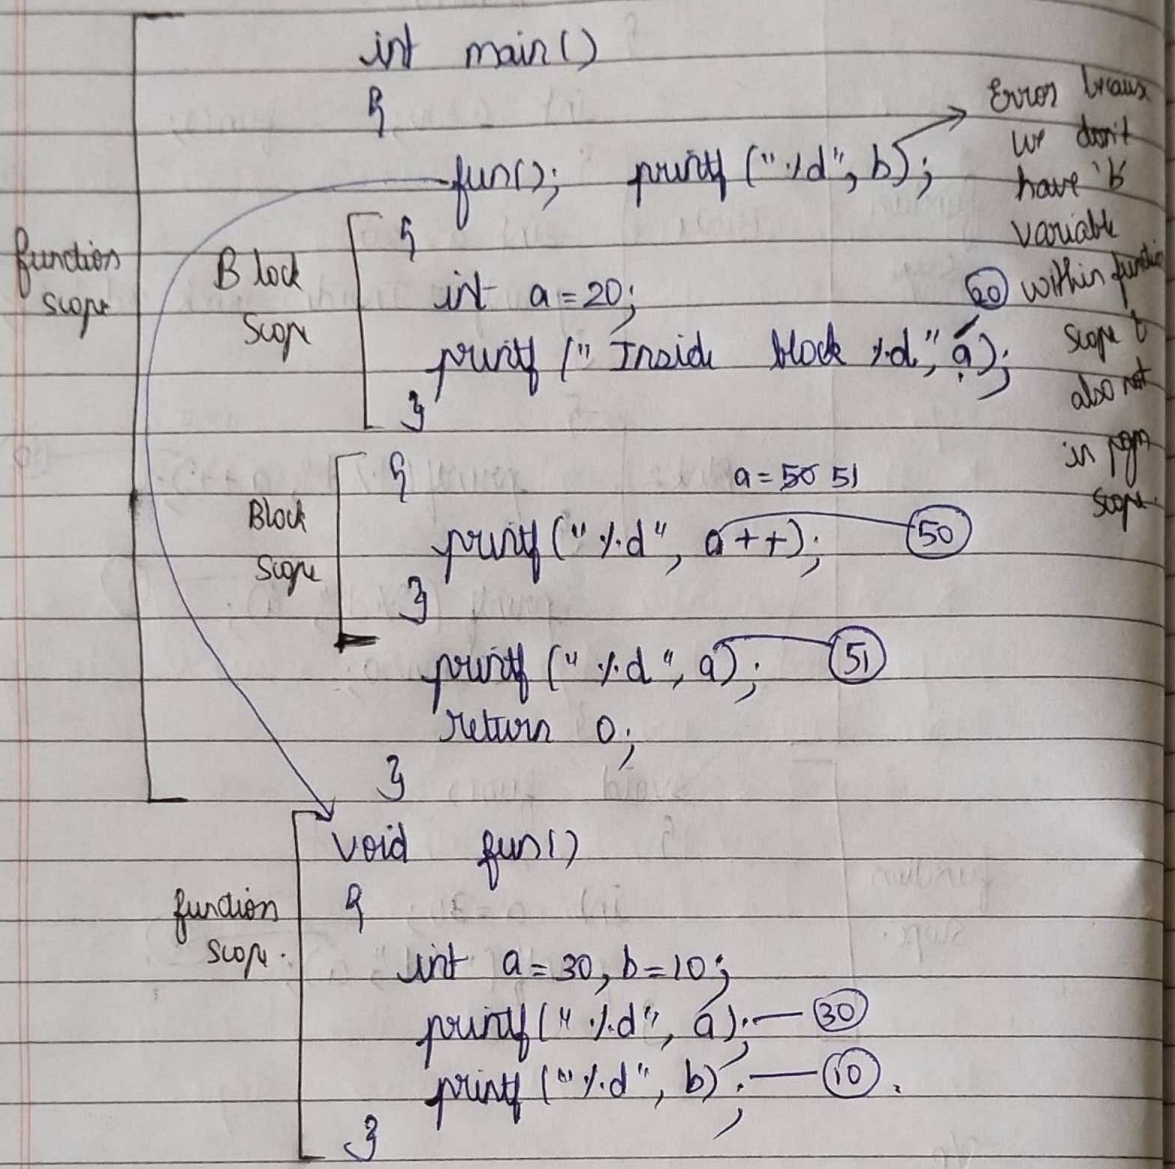 int main()
{
fun(); printf ("%d", b);
Error becaus
we don't
have 'b'
variable
within functio
scope &
also not
in pgm
scope.
function
scope
Block
Scope
{
int a = 20;
printf (" Inside block %d", a);
20
}
Block
Scope
{
a = 50 51
printf (" %d", a++);
50
}
printf (" %d ", a);
51
return 0;
}
void fun()
function
scope.
{
int a = 30, b = 10;
printf (" %d", a); — 30
printf (" %d", b); — 10.
}